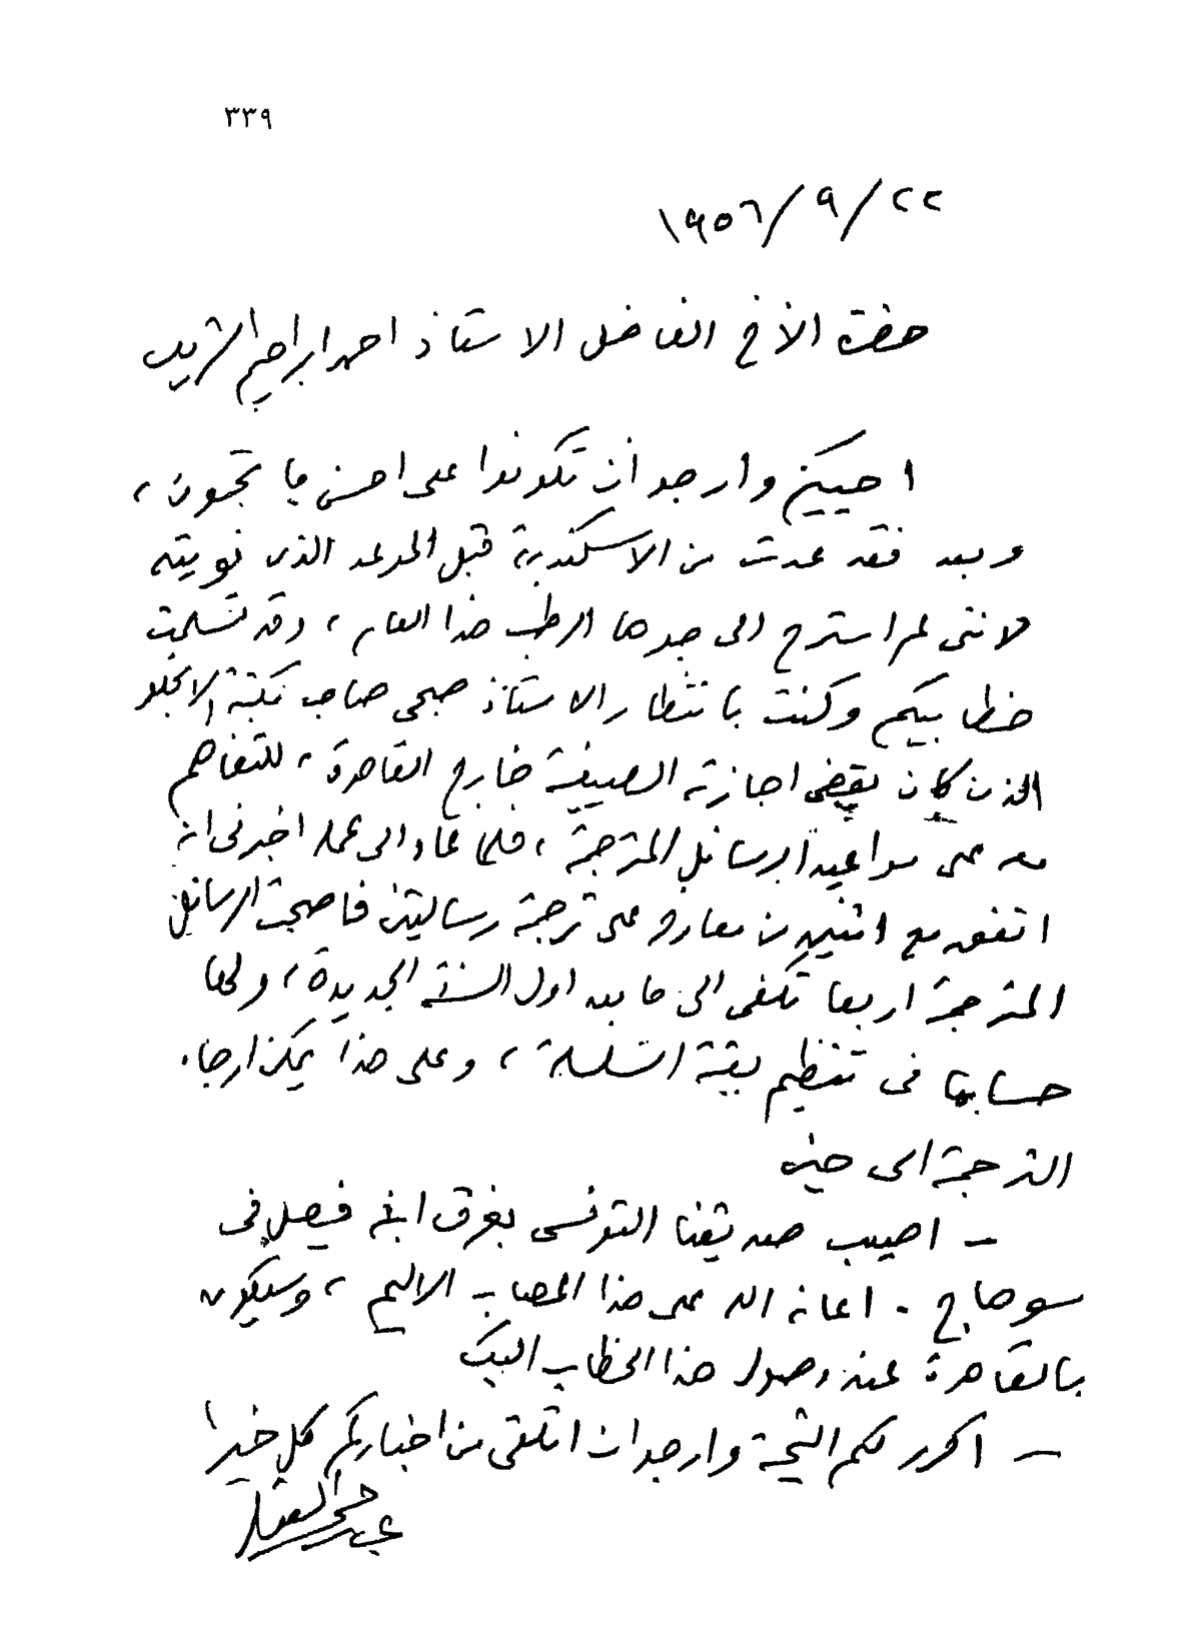 ٣٣٩
٢٢/٩/١٩٥٦
حضرة الأخ الفاضل الاستاذ احمد ابراهيم الشريف
احييكم وارجو ان تكونوا على احسن ما تحبون ،
وبعد فقد عدت من الاسكندرية قبل الموعد الذى نويته
لاننى لم استرح الى جوها الرطب هذا العام ، وقد تسلمت
خطابيكم وكنت بانتظار الاستاذ صبحى صاحب مكتبة الانجلو
الذى كان يقضى اجازته الصيفية خارج القاهرة ، للتفاهم
معه على مواعيد الرسائل المترجمة ، فلما عاد الى عمله اخبرنى انه
اتفق مع اثنين من معارفه على ترجمة رسالتين فاصبحت الرسائل
المترجمة اربعا تكفى الى ما بعد اول السنة الجديدة ، ولها
حسابها فى تنظيم بقية السلسلة ، وعلى هذا يمكن ارجاء
الترجمة الى حين
– اصيب صديقنا التونسى بغرق ابنه فيصل فى
سوهاج . اعانه الله على هذا المصاب الاليم ، وسيكون
بالقاهرة عند وصول هذا الخطاب اليك
– اكرر لكم التحية وارجو ان اتلقى من اخباركم كل خير
عباس محمود العقاد